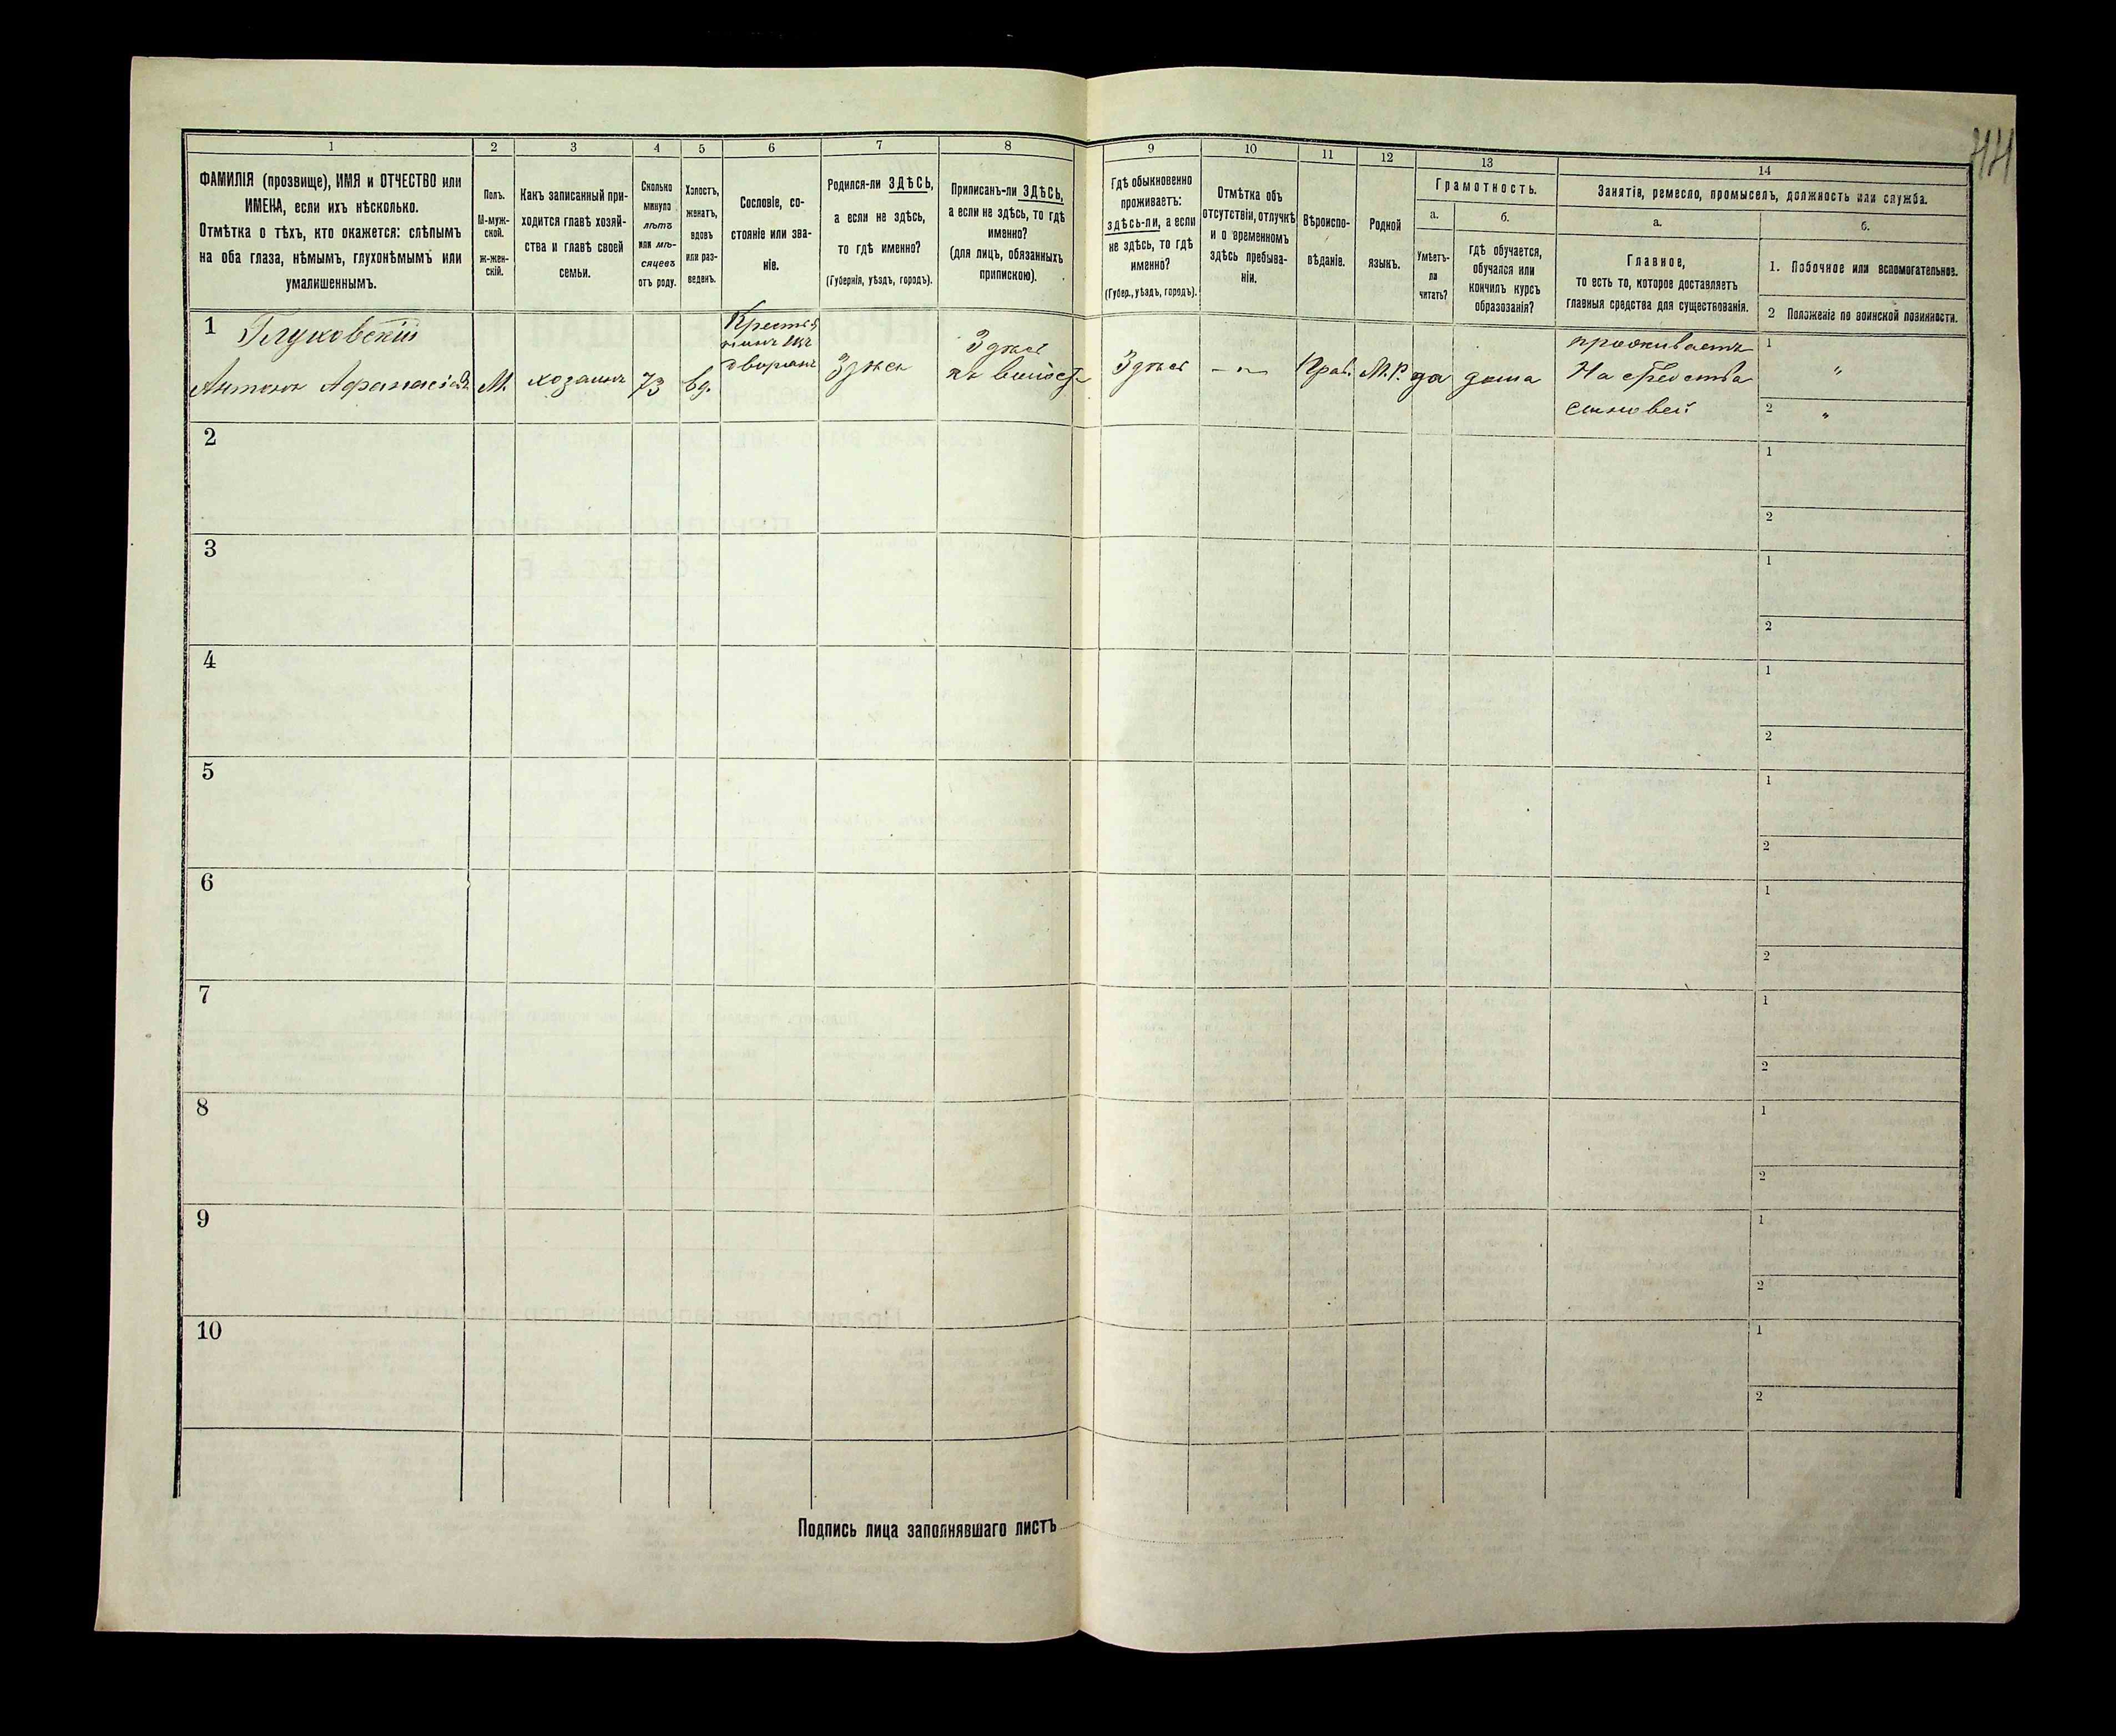 44
1 2 3 4 5 6 7 8 9 10 11 12 13 14
ФАМИЛІЯ (прозвище), ИМЯ и ОТЧЕСТВО или
ИМЕНА, если ихъ нѣсколько.
Отмѣтка о тѣхъ, кто окажется: слѣпымъ
на оба глаза, нѣмымъ, глухонѣмымъ или
умалишеннымъ.
Полъ.
М-муж-
ской.
ж-жен-
скій.
Какъ записанный при-
ходится главѣ хозяй-
ства и главѣ своей
семьи.
Сколько
минуло
лѣтъ
или мѣ-
сяцевъ
отъ роду.
Холостъ,
женатъ,
вдовъ
или раз-
веденъ.
Сословіе, со-
стояніе или зва-
ніе.
Родился-ли ЗДѢСЬ,
а если не здѣсь,
то гдѣ именно?
(Губернія, уѣздъ, городъ).
Приписанъ-ли ЗДѢСЬ,
а если не здѣсь, то гдѣ
именно?
(для лицъ, обязанныхъ
припискою).
Гдѣ обыкновенно
проживаетъ:
здѣсь-ли, а если
не здѣсь, то гдѣ
именно?
(Губер., уѣздъ, городъ).
Отмѣтка объ
отсутствіи, отлучкѣ
и о временномъ
здѣсь пребыва-
ніи.
Вѣроиспо-
вѣданіе.
Родной
языкъ.
Грамотность.
а.
Умѣетъ-
ли
читать?
б.
гдѣ обучается,
обучался или
кончилъ курсъ
образозанія?
Занятіе, ремесло, промыселъ, должность или служба.
а.
Главное,
то есть то, которое доставляетъ
главныя средства для существованія.
б.
1. Побочное или вспомогательное.
2 Положеніе по воинской повинности.
1 Глуховскій
Антонъ Афанасіев.
М.
хозяинъ
73
вд.
Крестья
нинъ изъ
дворянъ
Здѣсь
Здѣсь
Здѣсь
— „ —
Прав.
М.Р.
да
дома
проживаетъ
На средства
сыновей
1 „
2 „
2 1
2
3 1
2
4 1
2
5 1
2
6 1
2
7 1
2
8 1
2
9 1
2
10 1
2
Подпись лица заполнявшаго листъ